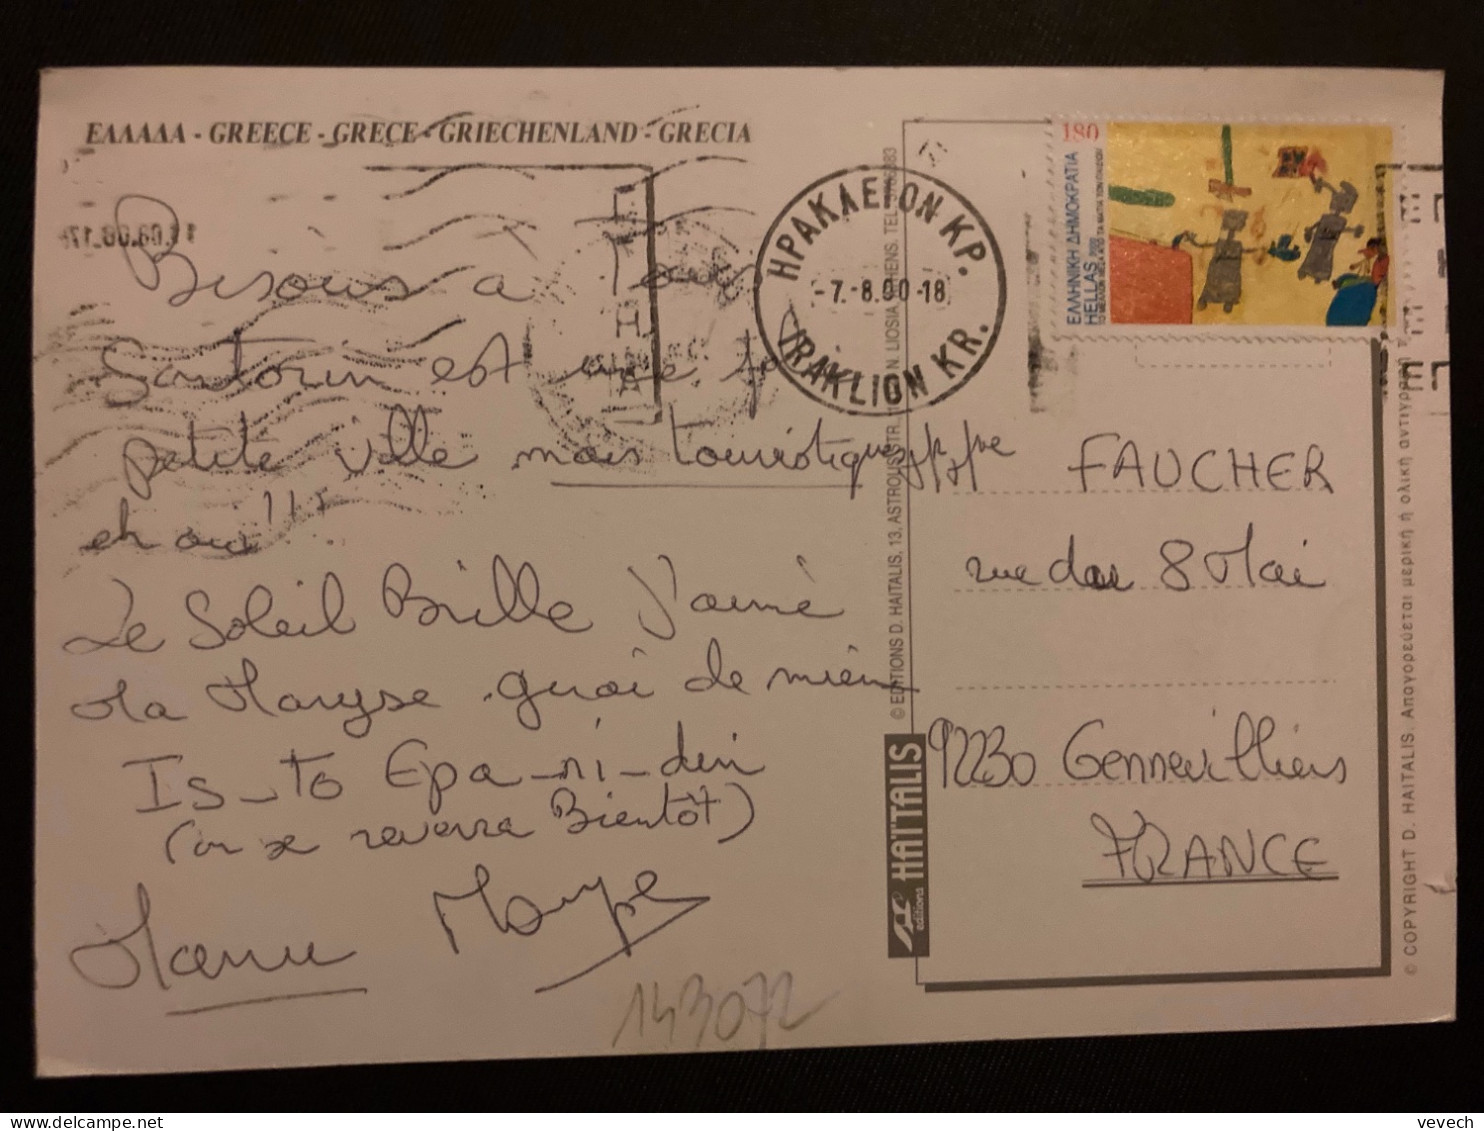 ΕΛΛΑΔΑ - GREECE - GRECE - GRIECHENLAND - GRECIA
Bisous à Tous
Santorin est une
petite ville mais touristique
eh oui !!!
Le Soleil Brille J'aime
Ma Maryse quoi de mieu
Is-to Epa-ni-din
(on se reverra Bientôt)
Manu Maryse
143072
ΗΡΑΚΛΕΙΟΝ ΚΡ.
-7.-8.00-18
IRAKLION KR.
180
ΕΛΛΗΝΙΚΗ ΔΗΜΟΚΡΑΤΙΑ
HELLAS
FAUCHER
rue du 8 Mai
92230 Gennevilliers
FRANCE
© EDITIONS D. HAITALIS, 13, ASTROUS STR. N. LIOSIA ATHENS. TEL.
HAÏTALIS
editions
© COPYRIGHT D. HAITALIS. Απαγορεύεται μερική ή ολική αντιγραφή
vevech